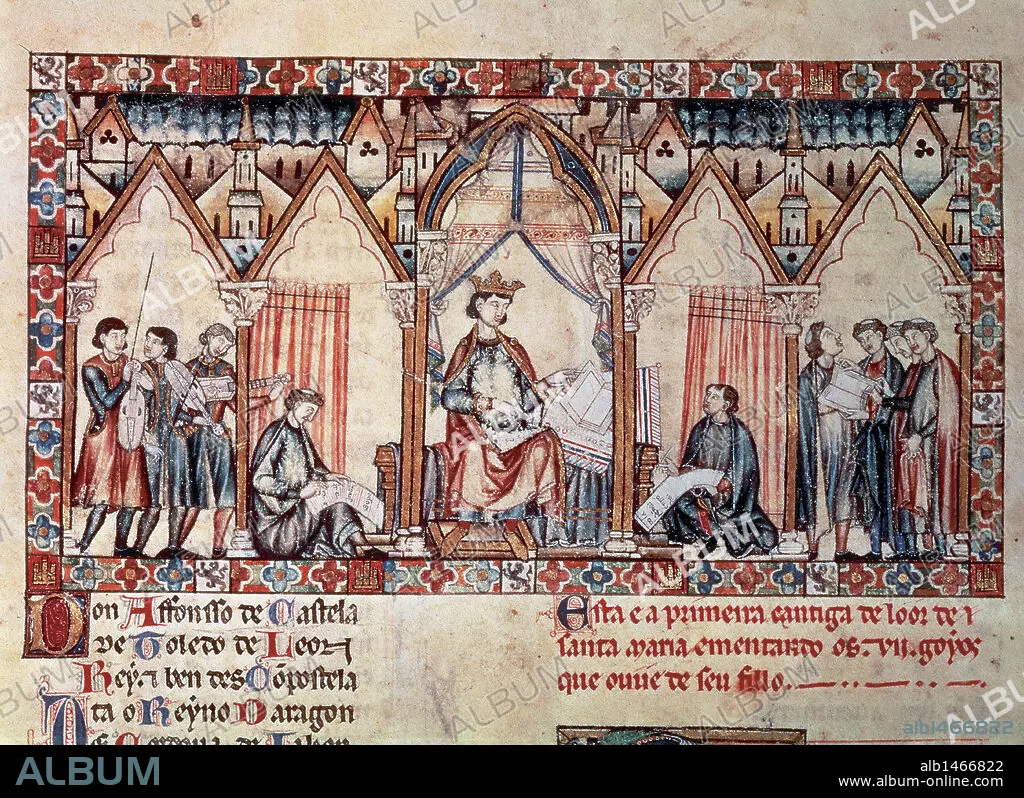 Don Affonsso de Castela
de Toledo de Leon
Rey ⁊ ben des Conpostela
ta o Reyno Daragon
Esta e a primeira cantiga de loor de
santa maria ementando os .vii. goyos
que ouue de seu fillo.
ALBUM
alb1466822
ALBUM
alb1466822
www.album-online.com